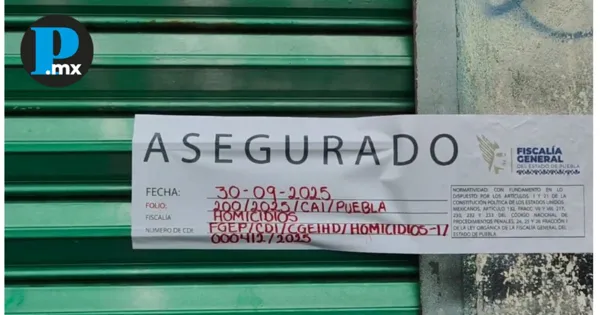 P.mx
ASEGURADO
FISCALÍA
GENERAL
DEL ESTADO DE PUEBLA
FECHA: 30-09-2025
FOLIO: 200/2025/CAI/PUEBLA
FISCALÍA HOMICIDIOS
NÚMERO DE CDI: FGEP/CDI/CGEIHD/HOMICIDIOS-I/
000412/2025
NORMATIVIDAD: CON FUNDAMENTO EN LO
DISPUESTO POR LOS ARTÍCULOS 1 Y 21 DE LA
CONSTITUCIÓN POLÍTICA DE LOS ESTADOS UNIDOS
MEXICANOS, ARTÍCULO 132, FRACC. VII Y VIII, 217,
230, 232 Y 233 DEL CÓDIGO NACIONAL DE
PROCEDIMIENTOS PENALES, 24, 25 Y 26 FRACCIÓN I
DE LA LEY ORGÁNICA DE LA FISCALÍA GENERAL DEL
ESTADO DE PUEBLA